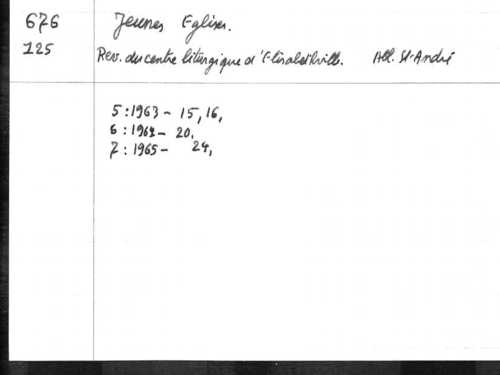 676 Jeunes Eglises.
125 Rev. du centre liturgique d'Elisabethville. Abb. St-André
5 : 1963 - 15, 16,
6 : 1964 - 20,
7 : 1965 - 24,